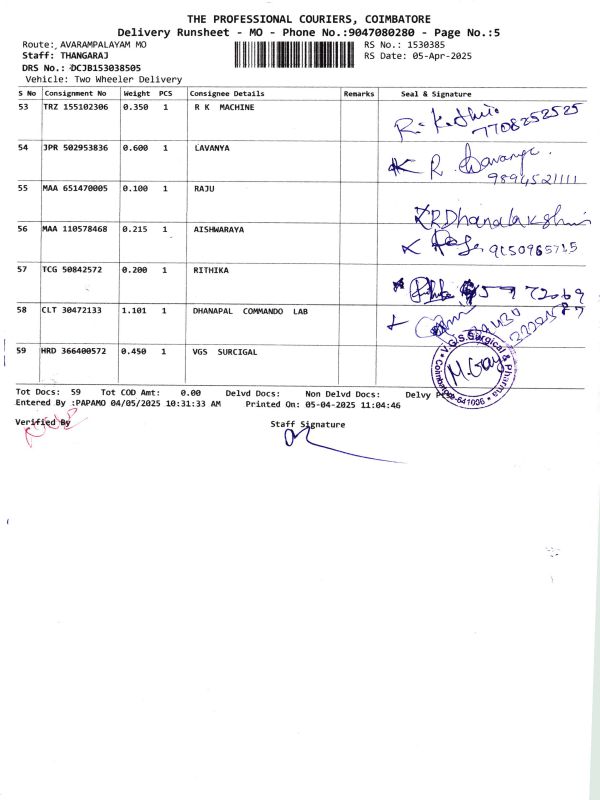 THE PROFESSIONAL COURIERS, COIMBATORE
Delivery Runsheet - MO - Phone No.:9047080280 - Page No.:5
Route: AVARAMPALAYAM MO RS No.: 1530385
Staff: THANGARAJ RS Date: 05-Apr-2025
DRS No.: DCJB153038505
Vehicle: Two Wheeler Delivery
S No Consignment No Weight PCS Consignee Details Remarks Seal & Signature
53 TRZ 155102306 0.350 1 R K MACHINE
7708252525
54 JPR 502953836 0.600 1 LAVANYA R.
9894521111
55 MAA 651470005 0.100 1 RAJU RDhanalakshmi
56 MAA 110578468 0.215 1 AISHWARAYA 9150965715
57 TCG 50842572 0.200 1 RITHIKA
58 CLT 30472133 1.101 1 DHANAPAL COMMANDO LAB
59 HRD 366400572 0.450 1 VGS SURCIGAL
V.G.S.Surgical & Pharma
Coimbatore-641006
Tot Docs: 59 Tot COD Amt: 0.00 Delvd Docs: Non Delvd Docs: Delvy
Entered By :PAPAMO 04/05/2025 10:31:33 AM Printed On: 05-04-2025 11:04:46
Verified By Staff Signature